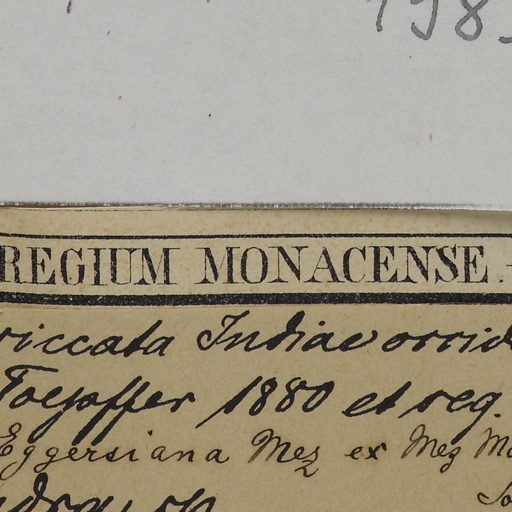 198
REGIUM MONACENSE.
siccata Indiae occid
Toepffer 1880 et reg.
Eggersiana Mez ex Mez Mo
So
sp